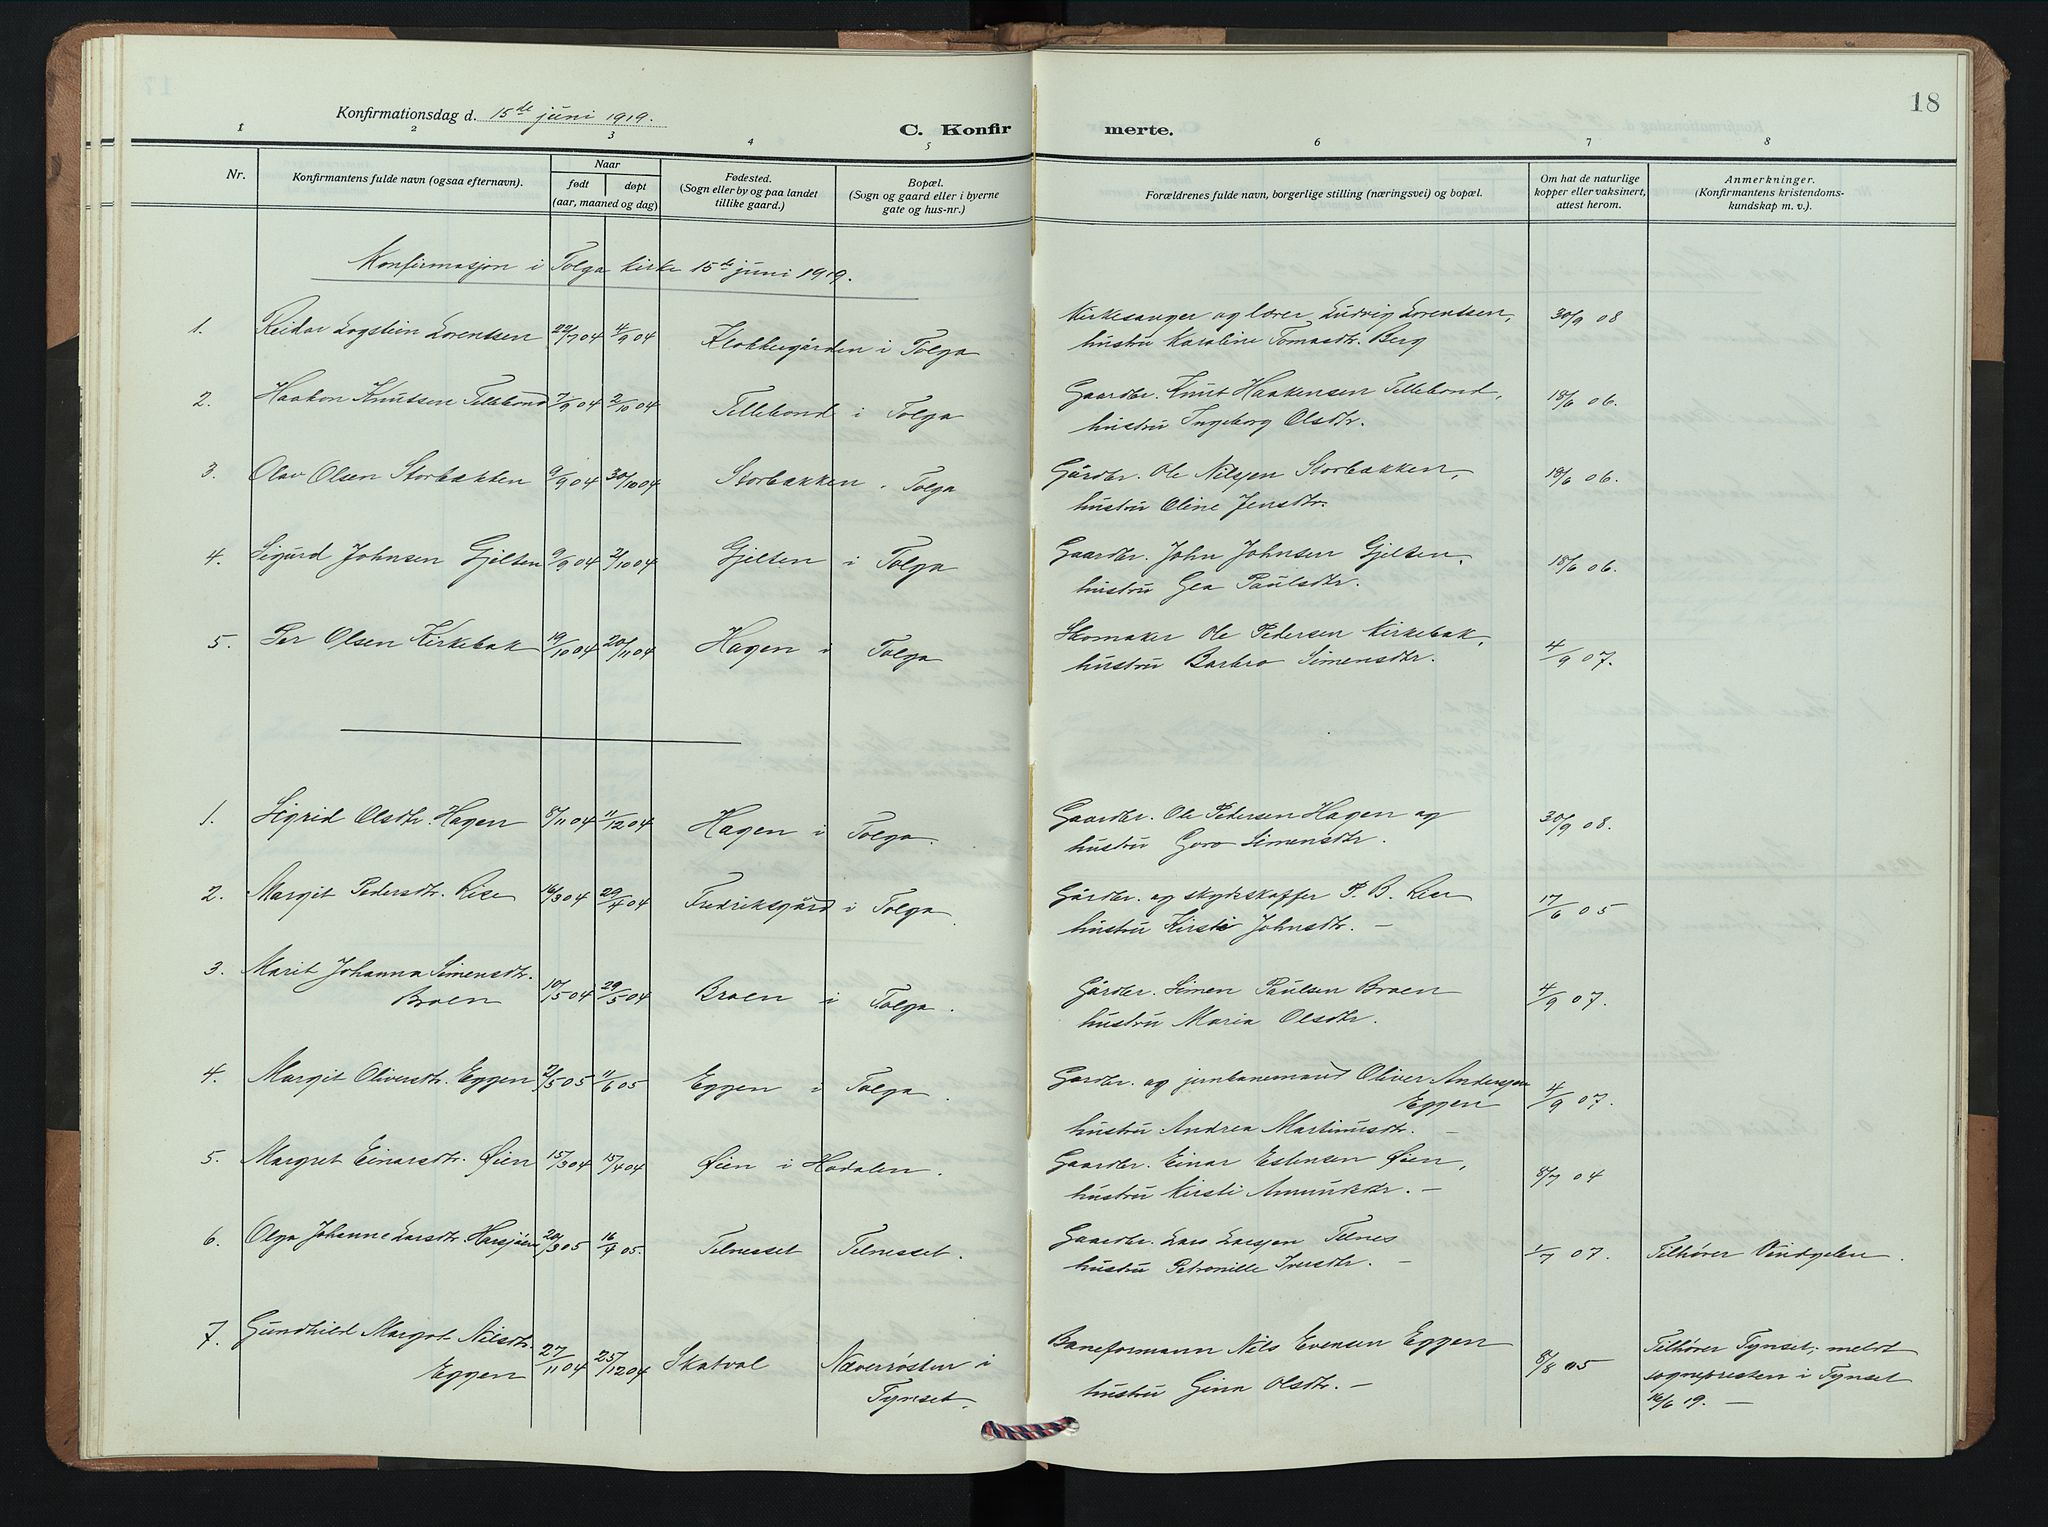 18
Konfirmationsdag d. 15de juni 1919.
C. Konfirmerte.
1 2 3 4 5 6 7 8
Nr.
Konfirmantens fulde navn (ogsaa efternavn).
Naar
født døpt
(aar, maaned og dag)
Fødested.
(Sogn eller by og paa landet
tillike gaard.)
Bopæl.
(Sogn og gaard eller i byerne
gate og hus-nr.)
Forældrenes fulde navn, borgerlige stilling (næringsvei) og bopæl.
Om hat de naturlige
kopper eller vaksinert,
attest herom.
Anmerkninger.
(Konfirmantens kristendoms-
kundskap m. v.).
Konfirmasjon i Tolga kirke 15de juni 1919.
1. Reidar Logstein Lorentsen 22/7 04 4/9 04 Klokkergården i Tolga Kirkesanger og lærer Ludvig Lorentsen, 30/9 08
hustru Karoline Tomasdtr. Berg
2. Haakon Knutsen Tellebond 7/9 04 2/10 04 Tellebond i Tolga Gaardbr. Knut Haakensen Tellebond, 18/6 06.
hustru Ingeborg Olsdtr.
3. Olav Olsen Storbækken 9/9 04 30/10 04 Storbækken. Tolga Gårdbr. Ole Nilsen Storbækken, 18/6 06.
hustru Oline Jensdtr.
4. Sigurd Johnsen Gjelten 9/9 04 2/10 04 Gjelten i Tolga Gaardbr. John Johnsen Gjelten, 18/6 06.
hustru Gea Paulsdtr.
5. Per Olsen Kirkebak 19/10 04 20/11 04 Hagen i Tolga Skomaker Ole Pedersen Kirkebak, 4/9 07.
hustru Barbro Simensdtr.
1. Sigrid Olsdtr. Hagen 8/11 04 11/12 04 Hagen i Tolga. Gaardbr. Ole Pedersen Hagen og 30/9 08.
hustru Goro Simensdtr.
2. Margit Pedersdtr. Rise 16/3 04 29/4 04 Fredriksgård i Tolga. Gårdbr. og skydsskaffer P. B. Rise 17/6 05
hustru Kirsti Johnsdtr. —
3. Marit Johanna Simensdtr.
Broen 10/5 04 29/5 04 Broen i Tolga. Gårdbr. Simen Paulsen Broen 4/9 07.
hustru Maria Olsdtr.
4. Margit Oliversdtr. Eggen 2/5 05 11/6 05 Eggen i Tolga. Gardbr. og jernbanemand Oliver Andersen
Eggen 4/9 07.
hustru Andrea Martinusdtr. —
5. Margret Einarsdtr. Øien 15/3 04 15/4 04 Øien i Hodalen. Gaardbr. Einar Estensen Øien, 8/7 04
hustru Kirsti Amundsdtr. —
6. Olga Johanne Larsdtr. Harsjøen 20/3 05 16/4 05. Telnesset Telnesset. Gaardbr. Lars Larsen Telnes 1/7 07. Tilhører Vindgelen.
hustru Petronille Iversdtr. —
7. Gundhild Margot Nilsdtr.
Eggen 27/11 04 25/12 04 Skatval Næverrøsten i
Tynset. Baneformann Nils Evensen Eggen 8/8 05 Tilhører Tynset; meldt
hustru Gina Olsdtr. — sognepresten i Tynset
16/6 19. —